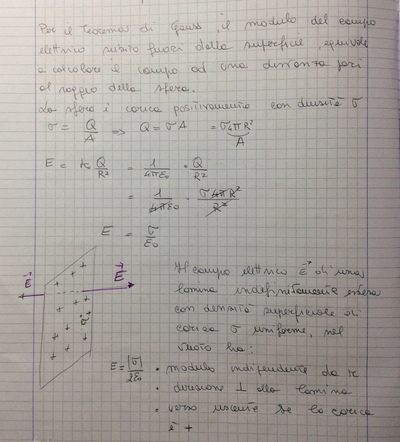 Per il Teorema di Gauss, il modulo del campo
elettrico subito fuori dalla superficie, equivale
a calcolare il campo ad una distanza pari
al raggio della sfera.
La sfera è carica positivamente con densità σ
σ = Q/A => Q = σ A = σ 4πR²
A
E = k Q/R² = 1/4πε₀ · Q/R²
= 1/4πε₀ · σ 4πR²/R²
E = σ/ε₀
E⃗ E⃗
+ + + + + + + + + + σ
Il campo elettrico E⃗ di una
lamina indefinitamente estesa
con densità superficiale di
carica σ uniforme, nel
vuoto ha:
E = |σ|/2ε₀ • modulo indipendente da r
• direzione ⊥ alla lamina
• verso uscente se la carica
è +